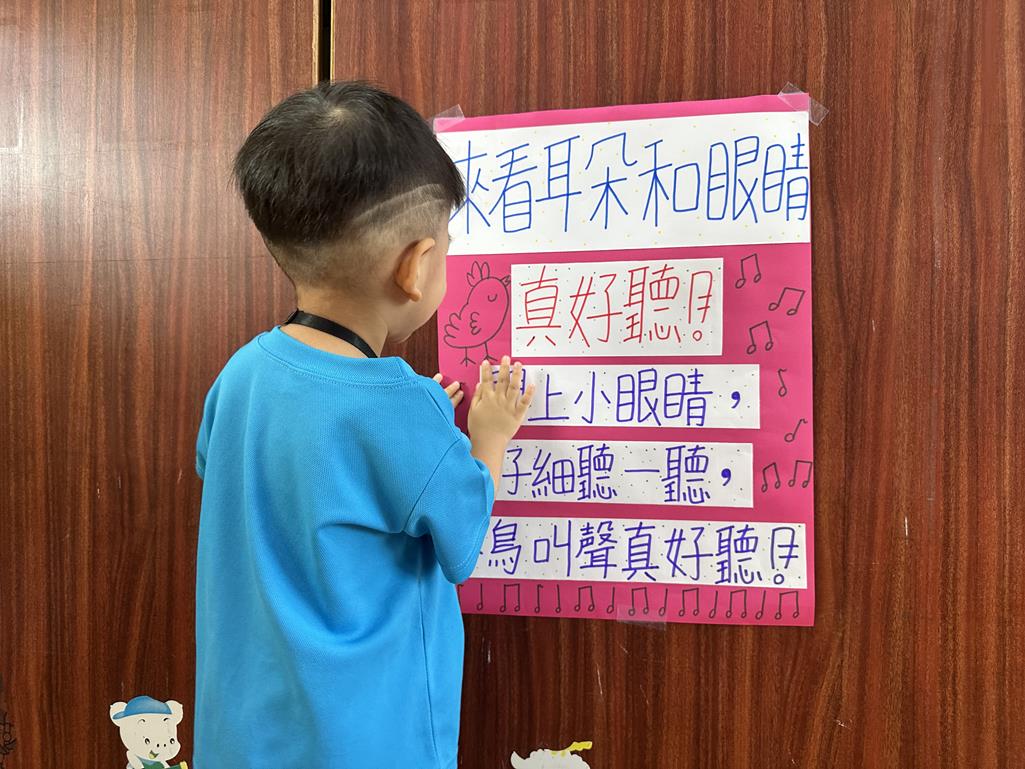 來看耳朵和眼睛
真好聽！
上小眼睛，
仔細聽一聽，
鳥叫聲真好聽！